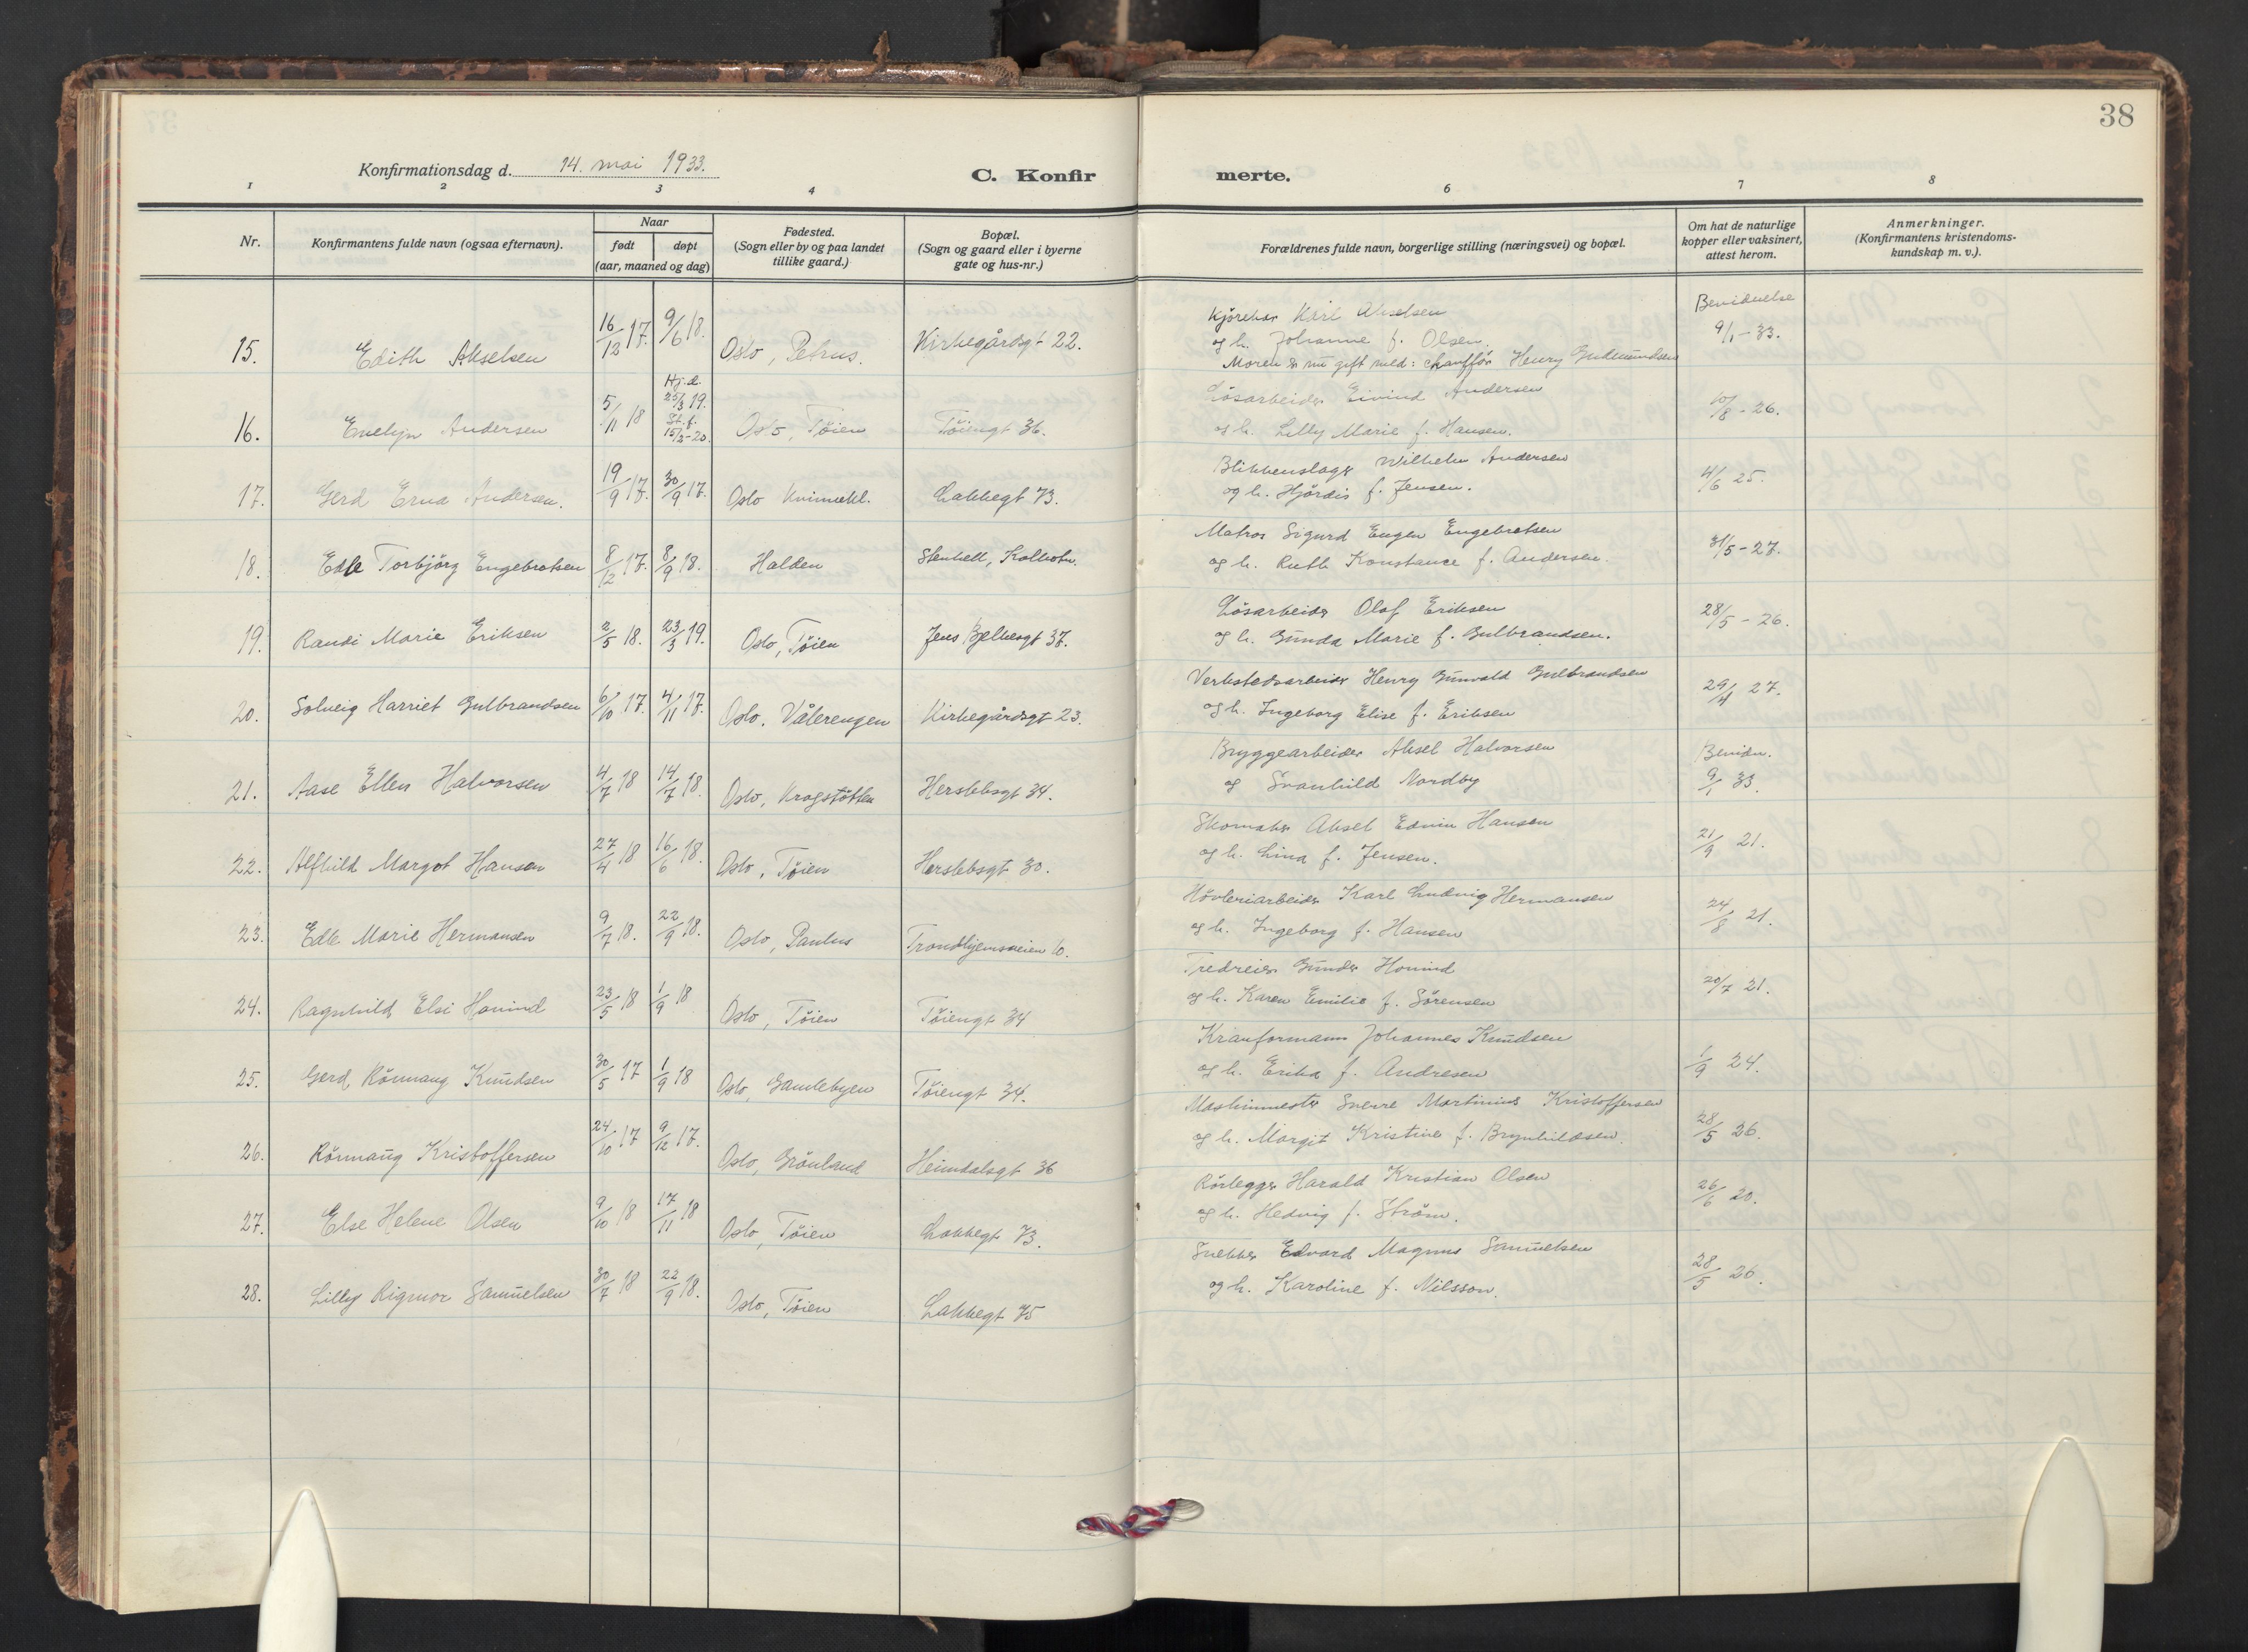 38
Konfirmationsdag d. 14. mai 1933.
C. Konfirmerte.
1 2 3 4 6 7 8
Nr.
Konfirmantens fulde navn (ogsaa efternavn).
Naar
født døpt
(aar, maaned og dag)
Fødested.
(Sogn eller by og paa landet
tillike gaard.)
Bopæl.
(Sogn og gaard eller i byerne
gate og hus-nr.)
Forældrenes fulde navn, borgerlige stilling (næringsvei) og bopæl.
Om hat de naturlige
kopper eller vaksinert,
attest herom.
Anmerkninger.
(Konfirmantens kristendoms-
kundskap m. v.).
15. Edith Akselsen 16/12 17. 9/6 18. Oslo, Petrus. Kirkegårdsgt 22.
Kjørekar Karl Akselsen
og h. Johanne f. Olsen.
Moren er nu gift med: chauffør Henry Gudmundsen
Bevidnelse
9/1-33.
16. Evelyn Andersen 5/11 18 Hj.d. 25/3 19. St.f. 15/2-20. Oslo, Tøien Tøiengt 36.
Løsarbeider Eivind Andersen
og h. Lilly Marie f. Hansen.
10/8-26.
17. Gerd Erna Andersen. 19/9 17. 30/9 17. Oslo Kvinnekl. Lakkegt 73.
Blikkenslager Wilhelm Andersen
og h. Hjørdis f. Jensen.
4/6 25.
18. Edle Torbjørg Engebretsen 8/12 17. 8/9 18. Halden Stenhell, Kolbotn.
Matros Sigurd Eugen Engebretsen
og h. Ruth Konstance f. Andersen.
31/5-27.
19. Randi Marie Eriksen 2/5 18. 23/3 19. Oslo, Tøien Jens Bjelkesgt 37.
Løsarbeider Olaf Eriksen
og h. Gunda Marie f. Gulbrandsen.
28/5-26.
20. Solveig Harriet Gulbrandsen 6/10 17. 4/11 17. Oslo. Vålerengen Kirkegårdsgt 23.
Verkstedsarbeider Henry Gunvald Gulbrandsen
og h. Ingeborg Elise f. Eriksen
29/4 27.
21. Aase Ellen Halvorsen 4/7 18 14/7 18. Oslo, Krogstøtten Herslebsgt 34.
Bryggearbeider Aksel Halvorsen
og Svanhild Nordby
Bevidn.
9/1 33.
22. Alfhild Margot Hansen 27/4 18 16/6 18. Oslo, Tøien Herslebsgt 30.
Skomaker Aksel Edvin Hansen
og h. Lina f. Jensen.
21/9 21.
23. Edle Marie Hermansen 9/7 18. 22/9 18. Oslo, Paulus Trondhjemsveien 10.
Høvleriarbeider Karl Ludvig Hermansen
og h. Ingeborg f. Hansen
24/8 21.
24. Ragnhild Elsi Hovind 23/5 18 1/9 18 Oslo, Tøien Tøiengt 34
Tredreier Gunder Hovind
og h. Karen Emilie f. Sørensen
20/7 21.
25. Gerd Rønnaug Knudsen 30/5 17 1/9 18 Oslo, Gamlebyen Tøiengt 34.
Kranformann Johannes Knudsen
og h. Erika f. Andresen
1/9 24.
26. Rønnaug Kristoffersen 24/10 17 9/12 17. Oslo, Grønland Heimdalsgt 36
Maskinmester Sverre Martinius Kristoffersen
og h. Margit Kristine f. Brynhildsen.
28/5 26.
27. Else Helene Olsen 9/10 18 17/11 18 Oslo, Tøien Lakkegt 73.
Rørlegger Harald Kristian Olsen
og h. Hedvig f. Strøm.
26/6 20.
28. Lilly Rigmor Samuelsen 30/7 18 22/9 18. Oslo, Tøien Lakkegt 75
Snekker Edvard Magnus Samuelsen
og h. Karoline f. Nilsson.
28/5 26.